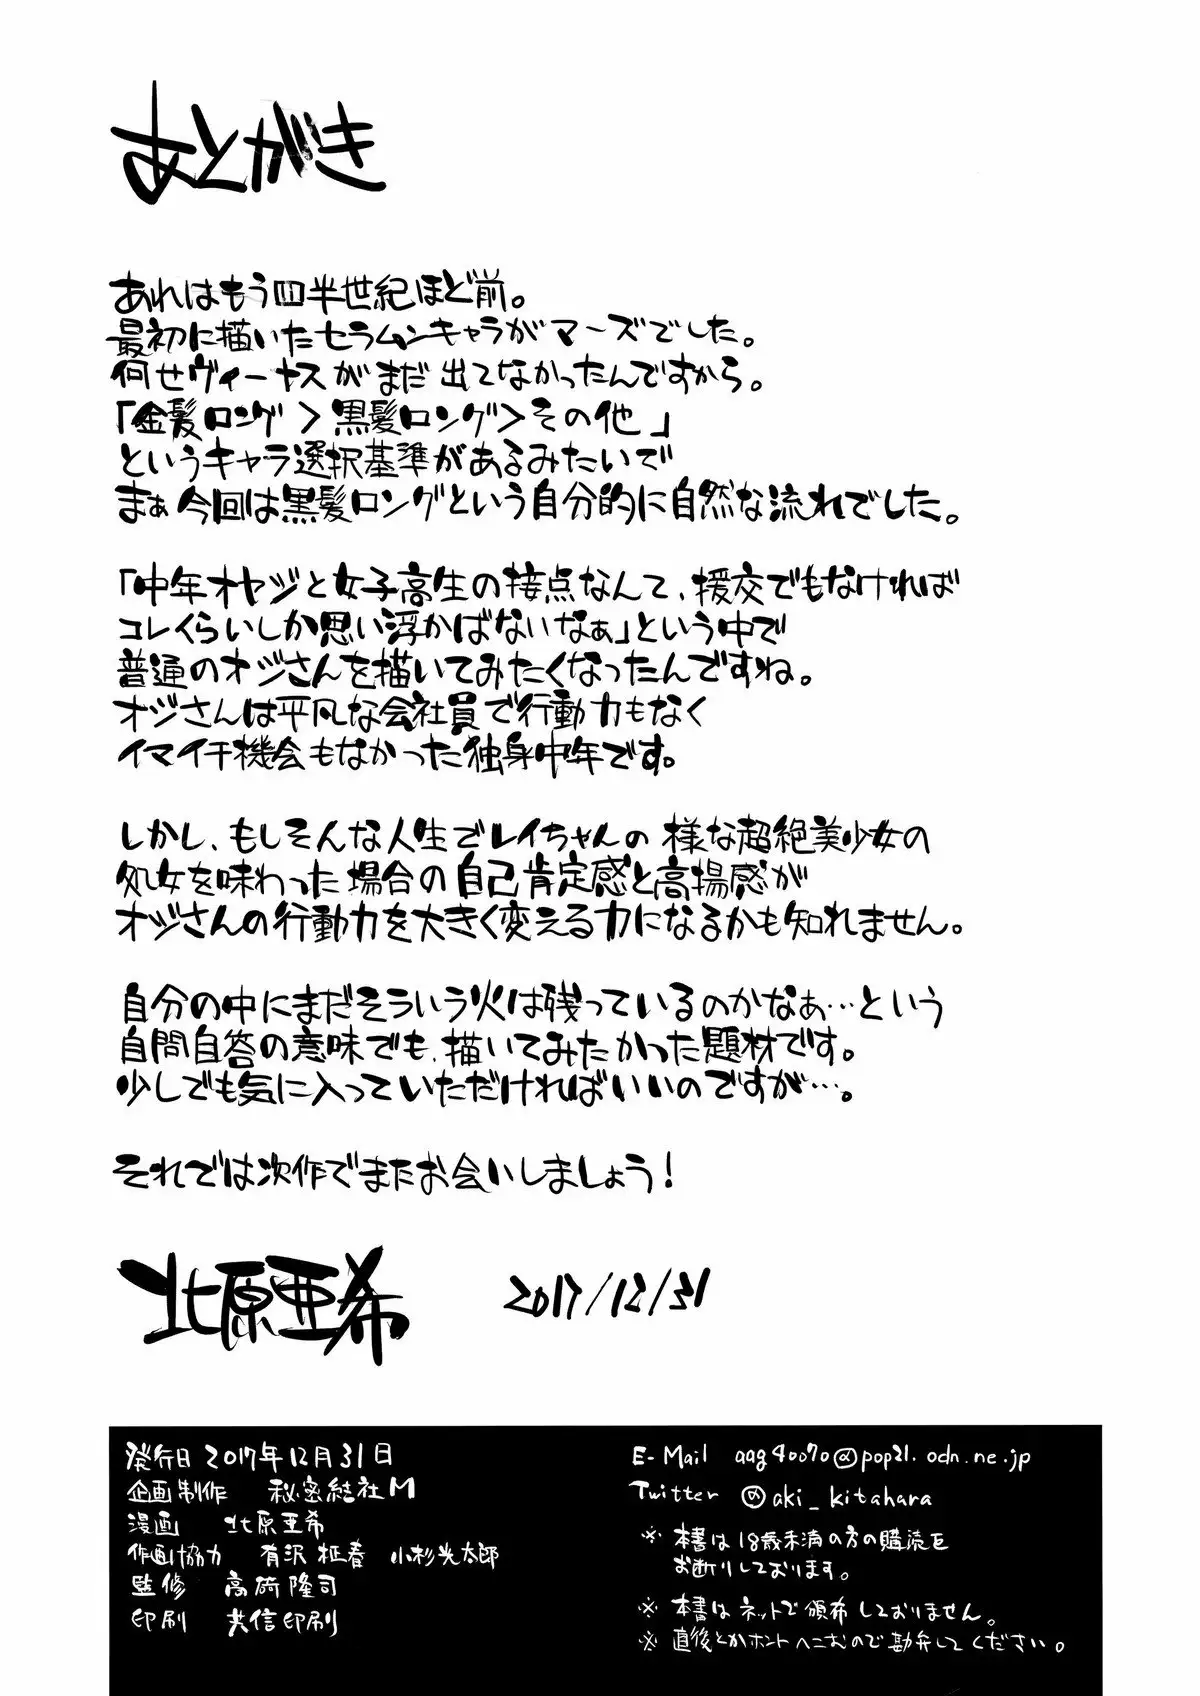 あとがき
あれはもう四半世紀ほど前。
最初に描いたセラムンキャラがマーズでした。
何せヴィーナスがまだ出てなかったんですから。
「金髪ロング＞黒髪ロング＞その他」
というキャラ選択基準があるみたいで
まぁ今回は黒髪ロングという自分的に自然な流れでした。
「中年オヤジと女子高生の接点なんて、援交でもなければ
コレくらいしか思い浮かばないなぁ」という中で
普通のオジさんを描いてみたくなったんですね。
オジさんは平凡な会社員で行動力もなく
イマイチ機会もなかった独身中年です。
しかし、もしそんな人生でレイちゃんの様な超絶美少女の
処女を味わった場合の自己肯定感と高揚感が
オジさんの行動力を大きく変える力になるかも知れません。
自分の中にまだそういう火は残っているのかなぁ…という
自問自答の意味でも、描いてみたかった題材です。
少しでも気に入っていただければいいのですが…。
それでは次作でまたお会いしましょう！
北原亜希 2017/12/31
発行日 2017年12月31日
企画制作 秘密結社M
漫画 北原亜希
作画協力 有沢 柾春 小杉光太郎
監修 高碕隆司
印刷 共信印刷
E-Mail aag40070@pop21.odn.ne.jp
Twitter @aki_kitahara
※ 本書は18歳未満の方の購読を
お断りしております。
※ 本書はネットで頒布しておりません。
※ 直後とかホントへこむので勘弁してください。